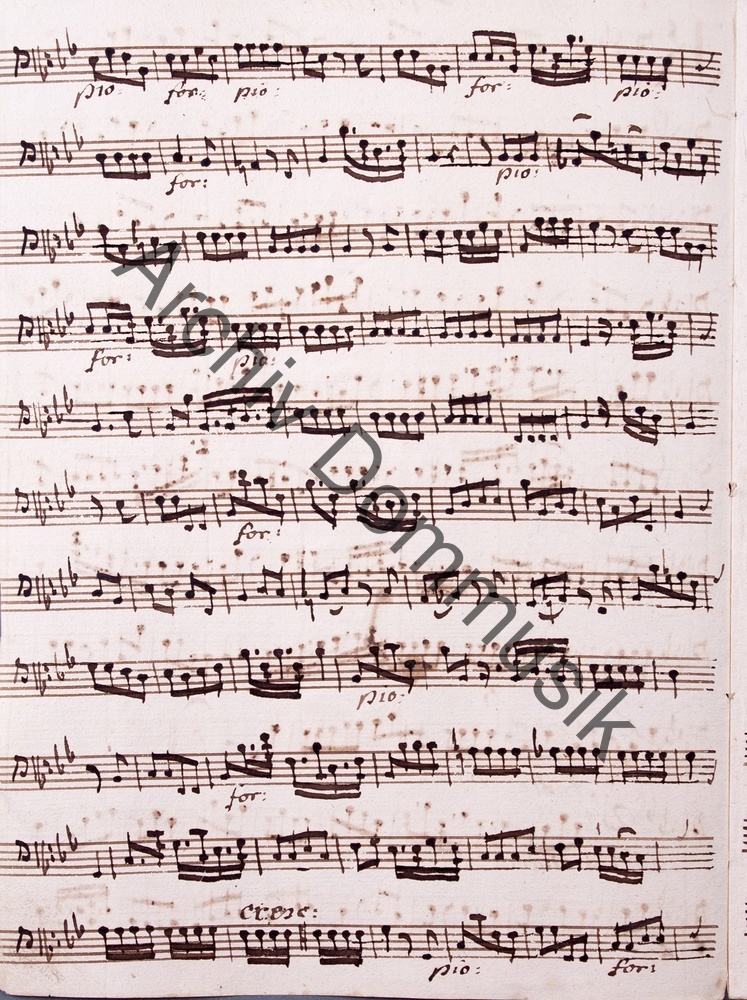 pio: for: pio: for: pio:
for: pio:
for: pio:
for:
pio:
for:
cresc:
pio: for:
Archiv Dommusik